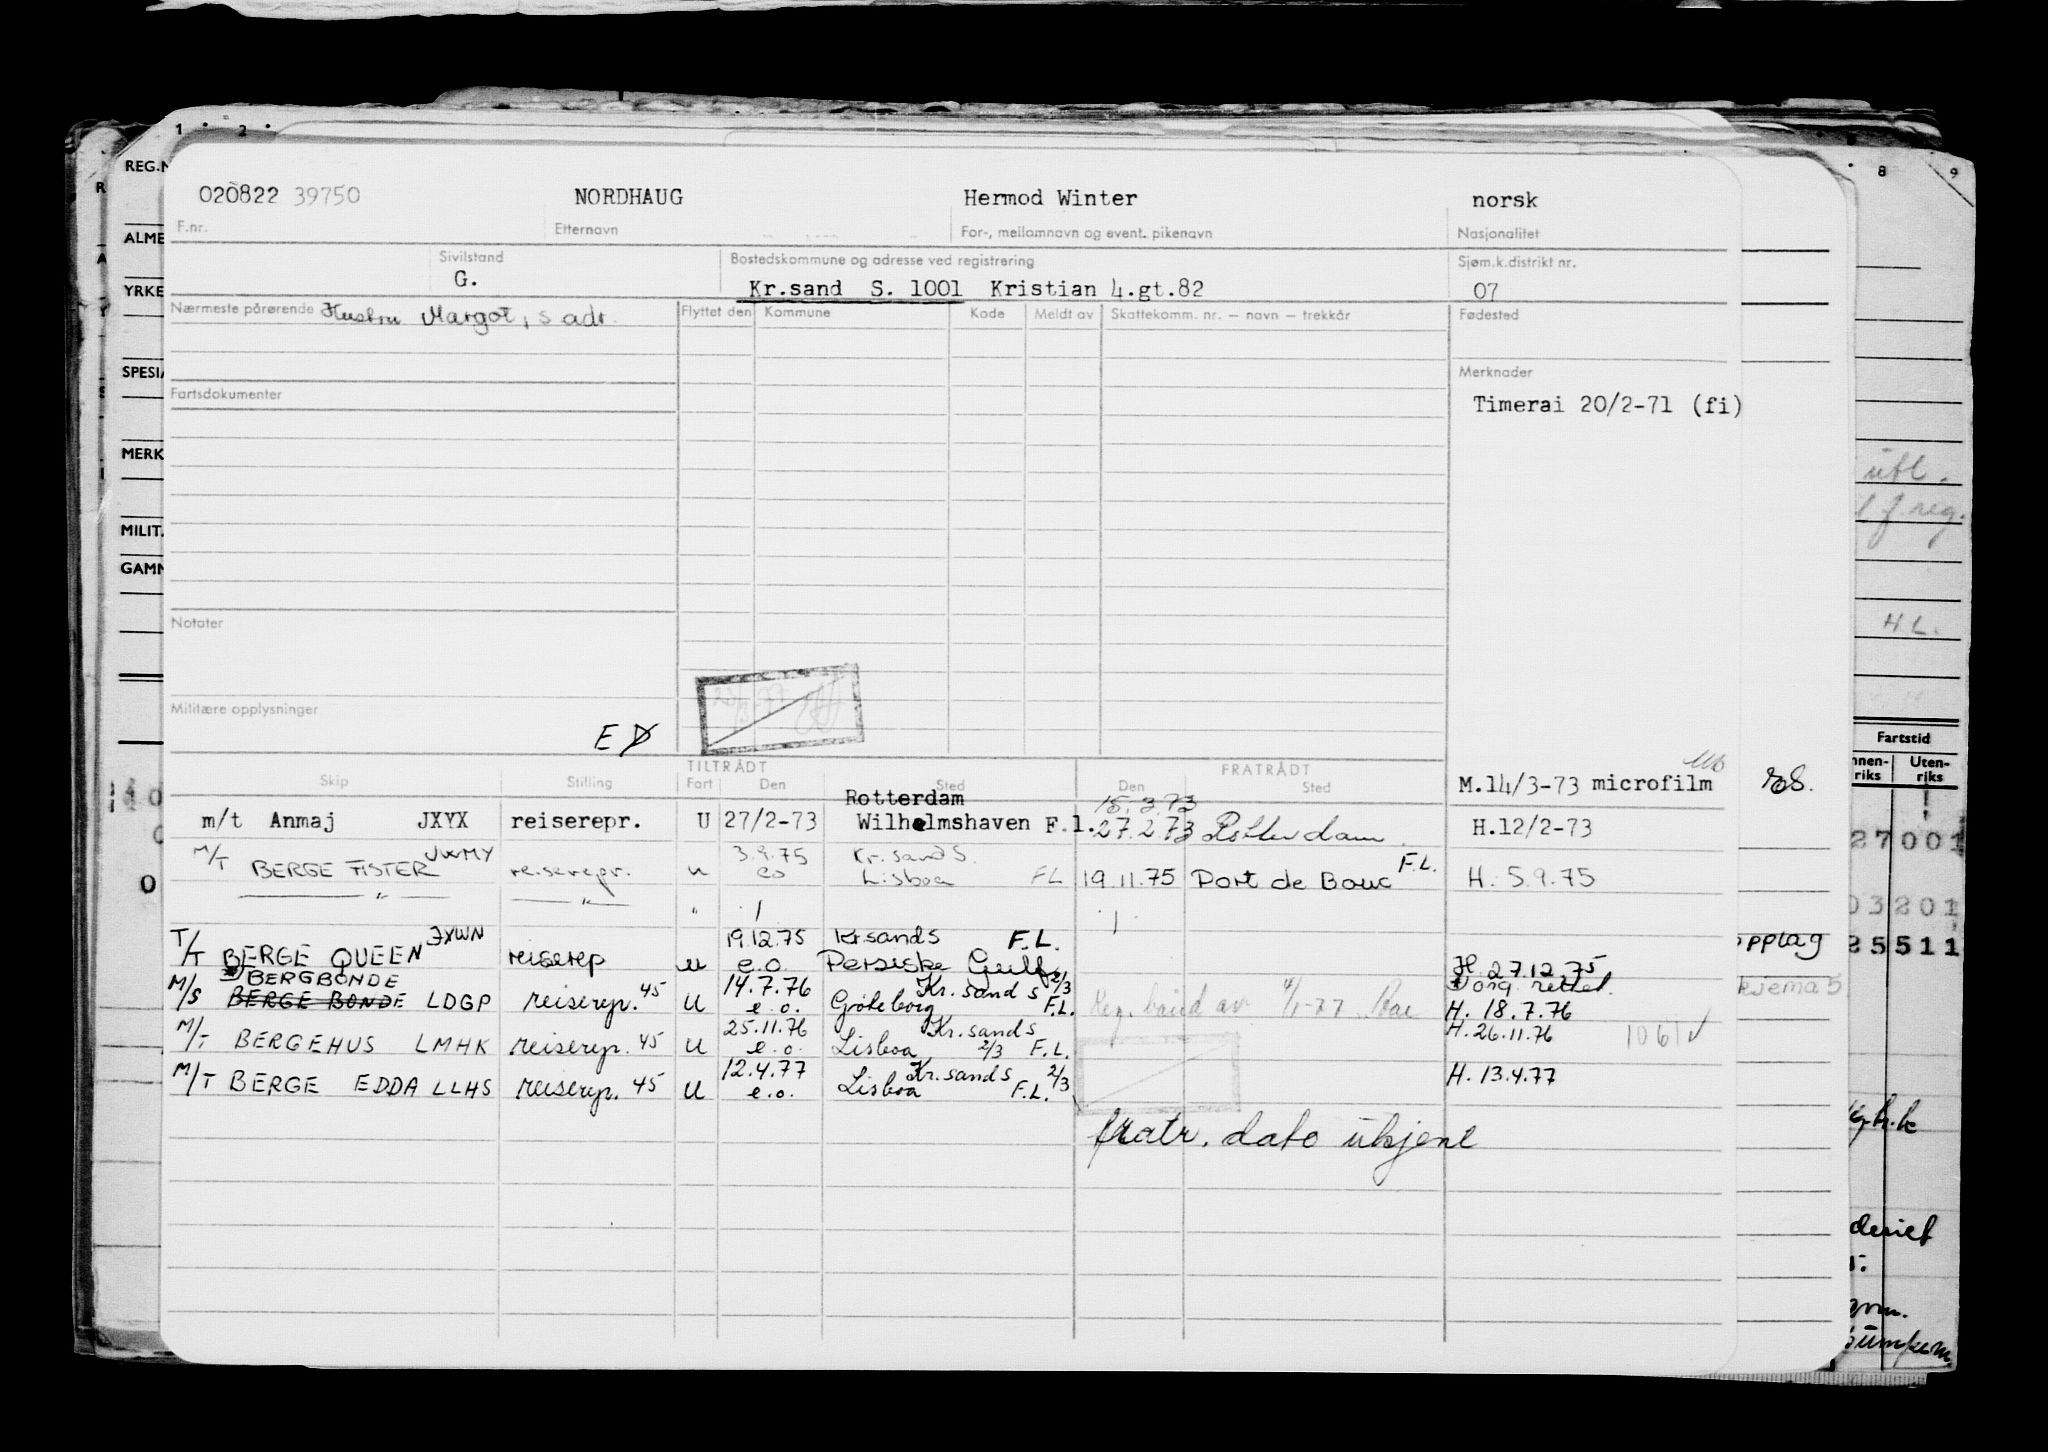 1 2 8 9
020822 39750 NORDHAUG Hermod Winter norsk
F.nr. Etternavn For-, mellomnavn og event. pikenavn Nasjonalitet
Sivilstand Bostedskommune og adresse ved registrering Sjøm.k.distrikt nr.
G. Kr.sand S. 1001 Kristian 4.gt.82 07
Nærmeste pårørende Hustru Margot, s adr. Flyttet den Kommune Kode Meldt av Skattekomm. nr. – navn – trekkår Fødested
Merknader
Fartsdokumenter Timerai 20/2-71 (fi)
utl.
reg.
Notater H L.
Militære opplysninger
E
Fartstid
TILTRÅDT FRATRÅDT
Skip Stilling Fart Den Sted Den Sted M.14/3-73 microfilm
Uten-
riks riks
Rotterdam 15.3.73
m/t Anmaj JXYX reiserepr. U 27/2-73 Wilhelmshaven F.l. 27.2.73 Rotterdam H.12/2-73
27001
M/T BERGE FISTER JWMY reiserepr. u 3.9.75 Kr.sand S.
eo Lisboa FL 19.11.75 Port de Bouc F.L. H. 5.9.75
— " — — " — " 03201
T/T BERGE QUEEN JXWN reiserep u 19.12.75 Kr.sand S F.L. opplag 25511
e.o. Persiske Gulf H. 27.12.75
M/S BERGBONDE 14.7.76 Kr.sand S 2/3 orig. rettet. kjema 5
BERGE BONDE LDGP reiserepr. 45 U e.o. Gøteborg F.L. H. 18.7.76
M/T BERGEHUS LMHK reiserepr. 45 U 25.11.76 Kr.sand S H.26.11.76 1061 ✓
e.o. Lisboa 2/3 F.L.
M/T BERGE EDDA LLHS reiserepr. 45 U 12.4.77 Kr.sand S 2/3 H. 13.4.77
e.o. Lisboa F.L.
fratr. dato ukjent
REG.N
ALME
YRKE
SPESIA
MERK
MILIT
GAMM